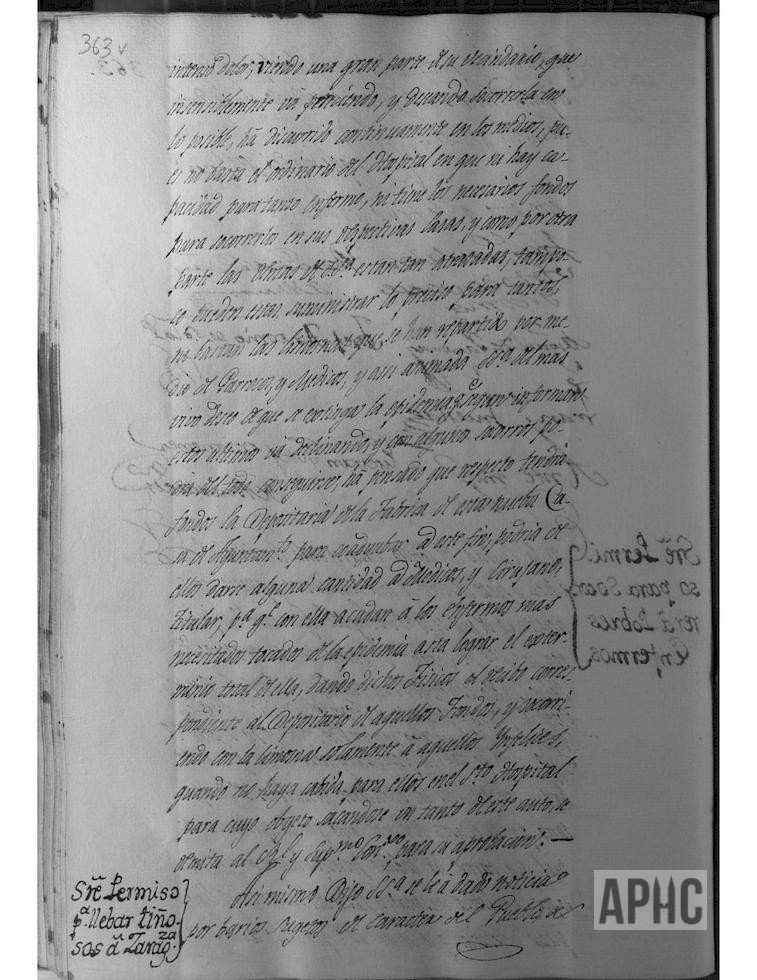 363 v
intenso dolor, viendo una gran parte de su vecindario, que
insensiblemente va pereciendo, y deseando socorrerla en
lo posible, ha discurrido continuamente en los medios, pu-
es no basta el ordinario del Hospital en que ni hay ca-
pacidad para tanto enfermo, ni tiene los necesarios fondos
para socorrerlos en sus respectivas Casas, y como por otra
parte las Rentas de estan tan atrasadas, tampo-
co pueden estas suministrar lo preciso para tantos,
ni bastan las limosnas que se han repartido por me-
dio de Parrocos, y Medicos, y asi animada Sª del mas
vivo deseo de que se extinga la epidemia q.e segun informan
estos ultimos va declinando, y con algunos socorros po-
dra del todo conseguirse, ha pensado que respecto tendra
fondos la Depositaria de la Fabrica de esta nueba Ca-
sa de Ayuntam.to para coadyubar a este fin, podria de
ellos darse alguna cantidad a Medicos, y Cirujano
titular, p.a q.e con ella acudan à los enfermos mas
necesitados tocados de la epidemia asta lograr el exter-
minio total de ella, dando dichos Fisicos el recibo corres-
pondiente al Depositario de aquellos Fondos, y socorri-
endo con la limosna solamente à aquellos Infelices,
quando no haya cabida para ellos en el S.to Hospital
para cuyo objeto sacandose un tanto de este auto, se
remita al R.l y Sup.mo Con.seo para su aprobacion. —
Sre Permiso
p.a llebar tiño-
sos à Zarag.za
Asi mismo Dijo Sª se le à dado noticia
por barios sugetos de caracter del Pueblo de
Sre Permi
so para Socor
rer a Pobres
Enfermos
APHC